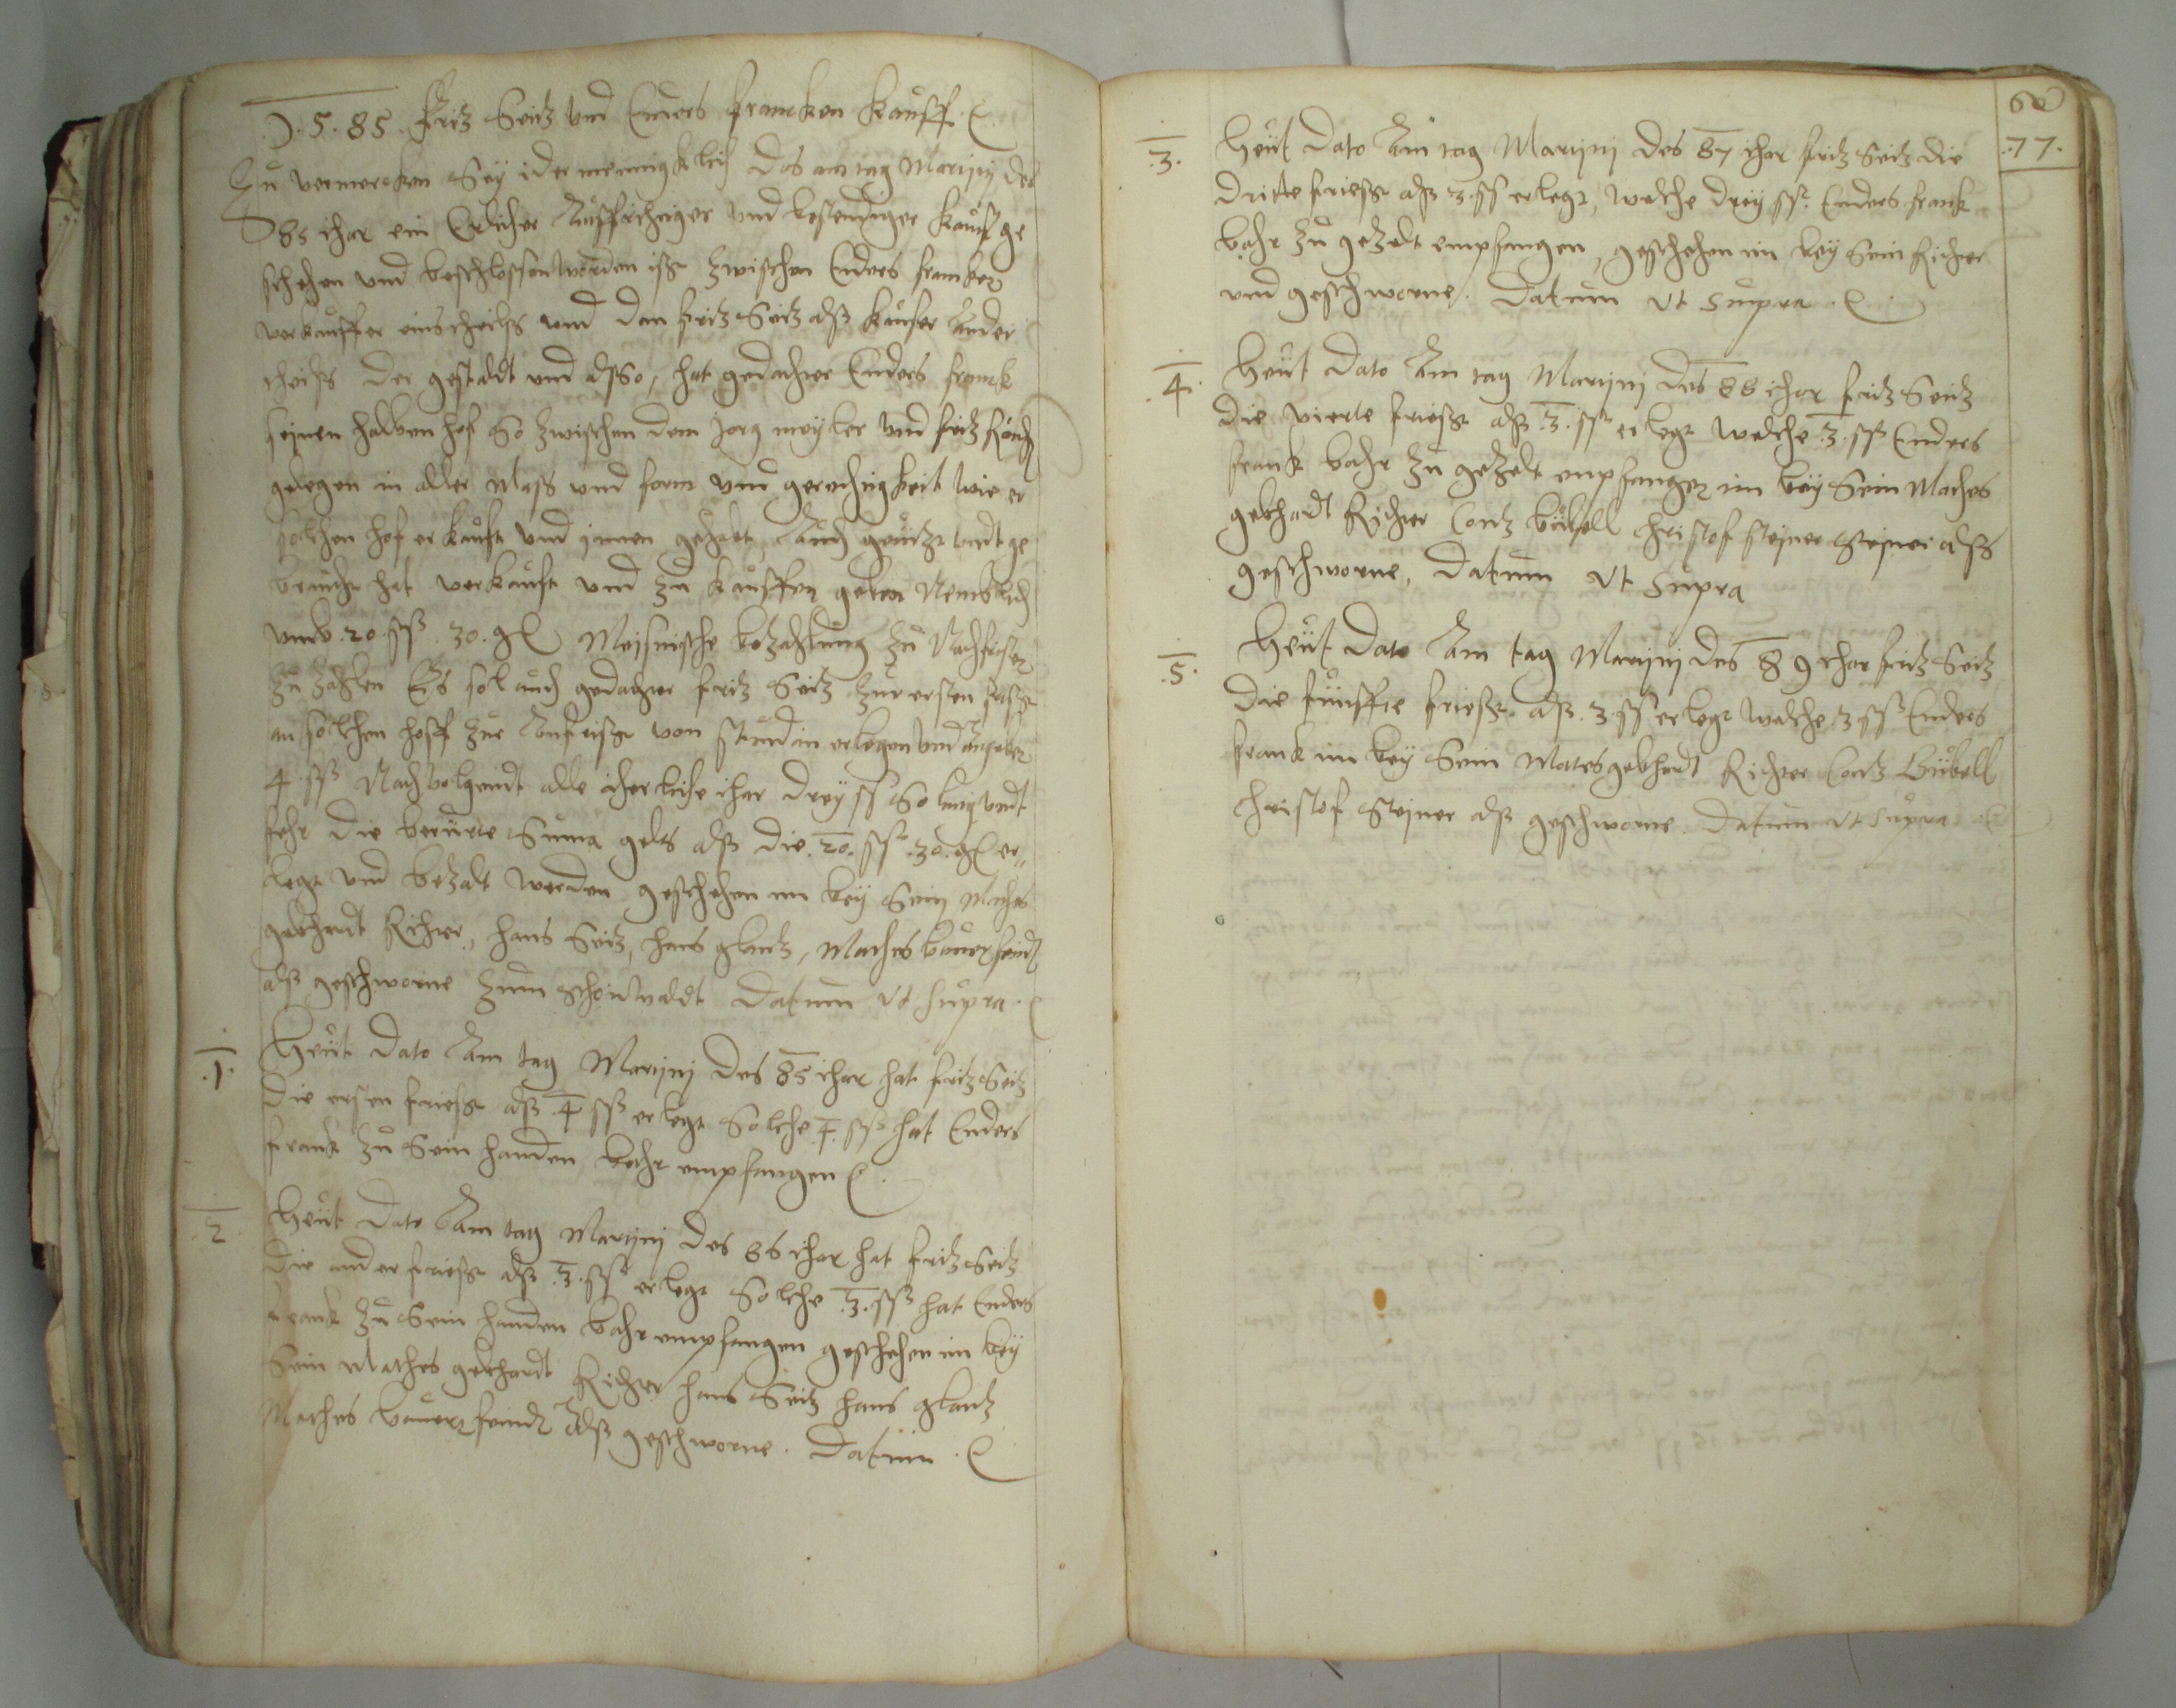 1585. Fritz Seitz und Enders Francken Kauff.
Zu vermercken Sey idermenniglich das am tag Martyny des
85 ihar ein Erlicher Auffrichtiger und bestendiger Kauff ge
schehen und beschlossen worden ist zwischen Enders francken
verkauffer eins theilß und dan fritz Seitz alß kaufer Ander
theilß der gestaldt und alßo, hat gedachter Enders franck
seynen halben hof So zwischen dem jorg meyler und fritz
gelegen in aller Maß und form und gerechtigkeit wie er
solchen hof erkauft und jnnen gehabt, Auch genutzt undt ge
braucht hat verkauft und zu kauffen geben Nemblich
umb .20. ßß .30. gl Meisnische bezahlung zu Nachfristen
zu zahlen Es sol auch gedachter fritz Seitz zur ersten frist
an solchem hoff zur Anfrist von stund an erlegen und angeben
4. ßß Nachvolgendt alle iherliche ihar drey ßß So lang undt
fehr die berurte Suma gelts alß die .20. ßß .30. gl er
legt und bezalt werden geschehen im bey Sein Mathes
gebhardt Richter, hans Seitz, hans glantz, Mathes bauerfeindt
alß geschworne zum Schonwaldt Datum Ut Supra.
.1. Heut Dato Am tag Martynj des 85 ihar hat fritz Seitz
die ersten friest alß .4. ßß erlegt Solche .4. ßß hat Enders
frank zu Sein handen bahr empfangen
.2. Heut Dato Am tag Martynj des 86 ihar hat fritz Seitz
die ander friest alß .3. ßß erlegt Solche .3. ßß hat Enders
frank zu Sein handen bahr empfangen geschehen im bey
Sein Mathes gebhardt Richter hans Seitz hans glantz
Mathes bauerfeindt Alß geschworne. Datum.
60
.77.
.3. Heut Dato Am tag Martynj des 87 ihar fritz Seitz die
dritte friest alß 3. ßß erlegt, welche drey ßß Enders frank
bahr zu gezelt empfangen, geschehen im bey Sein Richter
und geschworne. Datum Ut Supra.
.4. Heut Dato Am tag Martynj des 88 ihar fritz Seitz
die vierte friest alß .3. ßß erlegt welche .3. ßß Enders
frank bahr zu gezelt empfangen im bey Sein Mathes
gebhardt Richter Contz bübell Christof steyner alß
geschworne, Datum Ut Supra
.5. Heut Dato Am tag Martynj des 89 ihar fritz Seitz
die funffte friest alß .3. ßß erlegt welche 3 ßß Enders
frank im bey Sein Mates gebhardt Richter Contz Bübell
Christof Steyner alß geschworne. Datum Ut Supra